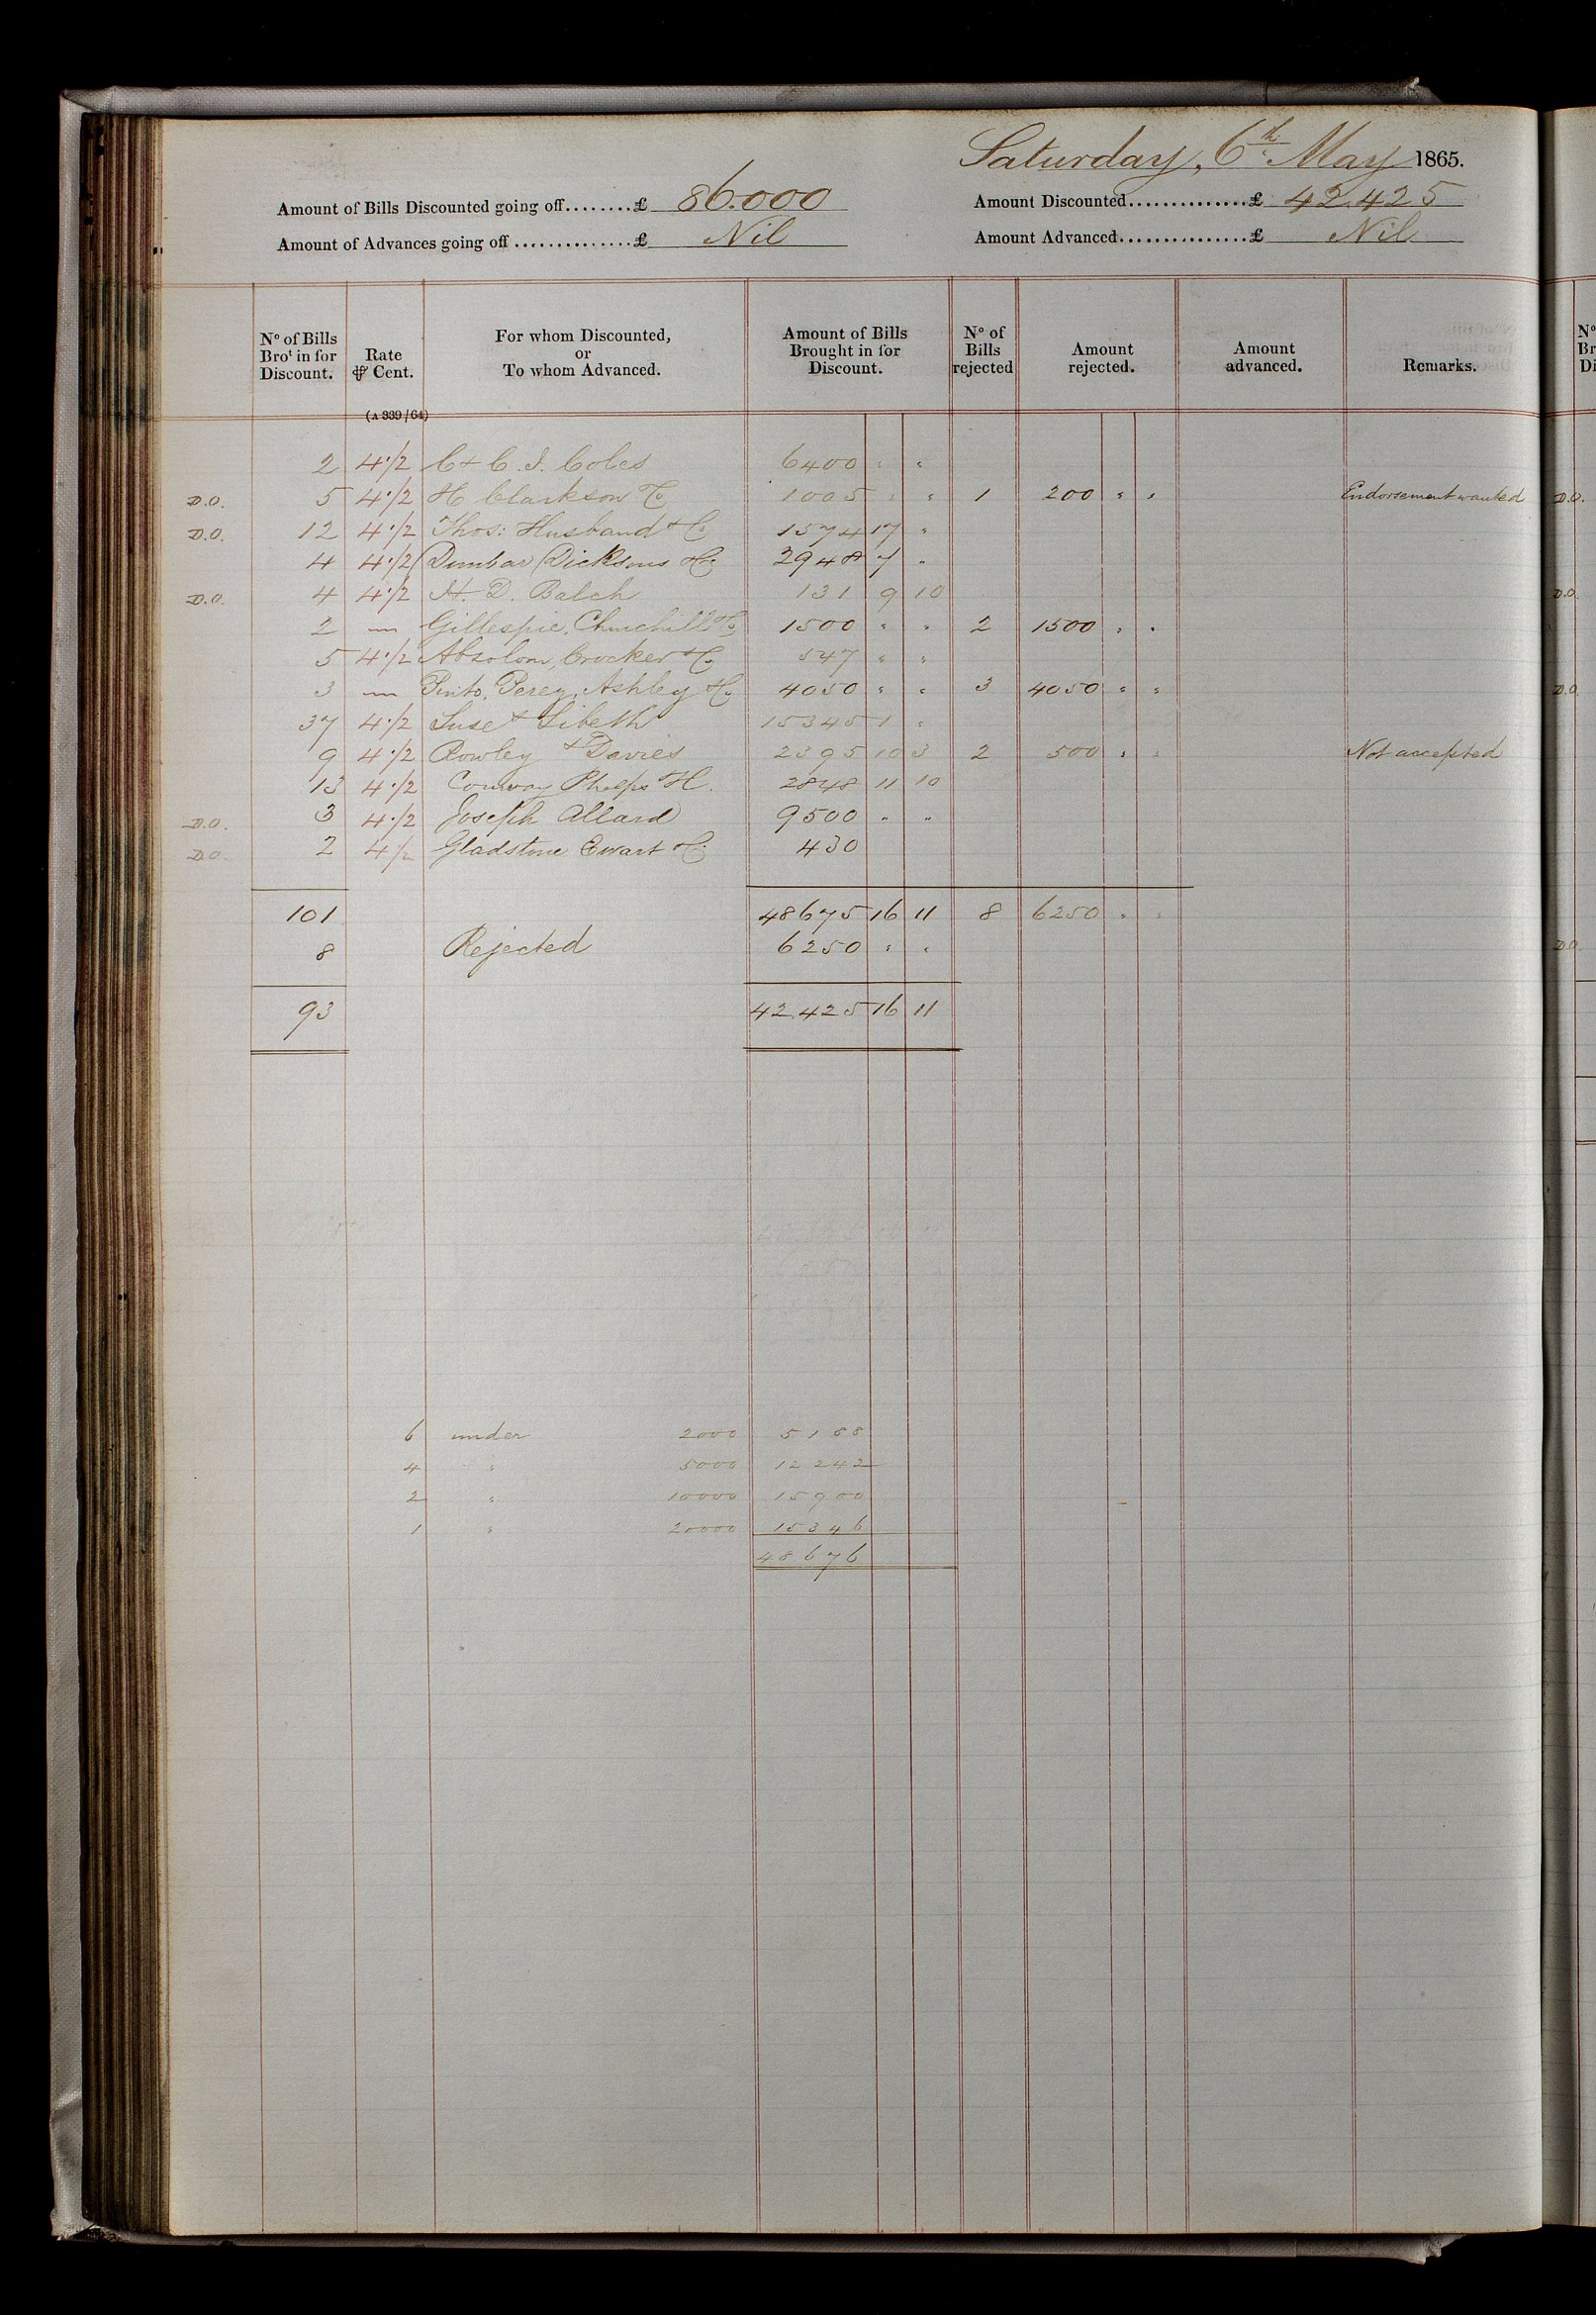 Saturday, 6th May 1865.
Amount of Bills Discounted going off........£ 86.000 Amount Discounted...............£ 42.425
Amount of Advances going off...............£ Nil Amount Advanced................£ Nil
No of Bills Brot in for Discount. Rate ⅌ Cent. For whom Discounted, or To whom Advanced. Amount of Bills Brought in for Discount. No of Bills rejected Amount rejected. Amount advanced. Remarks.
(A 339/64)
2 4·/2 C & C. J. Coles 6400 " "
D.O. 5 4·/2 H Clarkson & Co 1005 " " 1 200 " " Endorsement wanted
D.O. 12 4·/2 Thos: Husband & Co 1574 17 "
4 4·/2 Dunbar Dicksons & Co 2948 7 "
D.O. 4 4·/2 H. D. Balch 131 9 10
2 — Gillespie, Churchill & Co 1500 " " 2 1500 " "
5 4·/2 Absolom, Crocker & Co 547 " "
3 — Pinto, Perez, Ashley & Co 4050 " " 3 4050 " "
37 4·/2 Luse & Libeth 15345 1 "
9 4·/2 Rowley & Davies 2395 10 3 2 500 " " Not accepted
13 4·/2 Conway Phelps & Co. 2848 11 10
D.O. 3 4·/2 Joseph Allard 9500 " "
D.O. 2 4/2 Gladstone Ewart & Co 430
101 48675 16 11 8 6250 " "
8 Rejected 6250 " "
93 42.425 16 11
6 under 2000 5188
4 " 5000 12242
2 " 10000 15900
1 " 20000 15346
48676